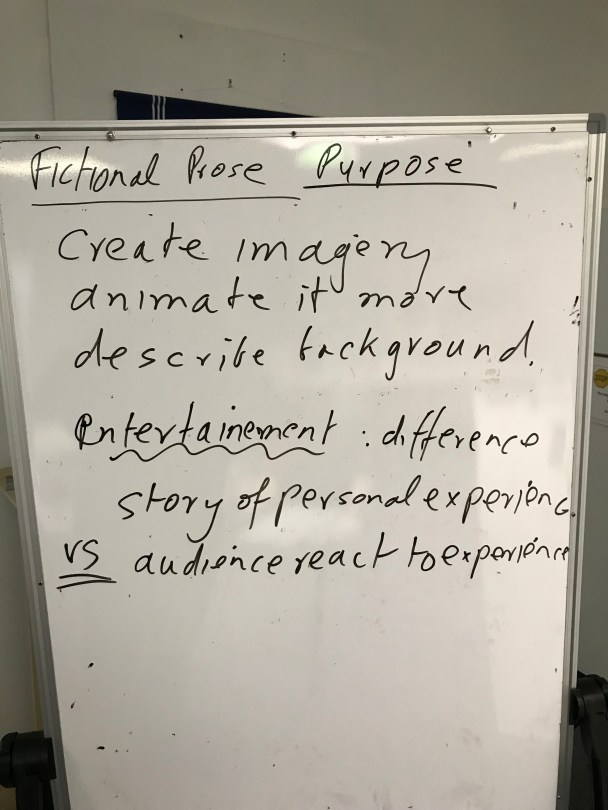 Fictional Prose Purpose
Create imagery
animate it more
describe background.
Entertainement : difference
story of personal experienc
vs audience react to experience